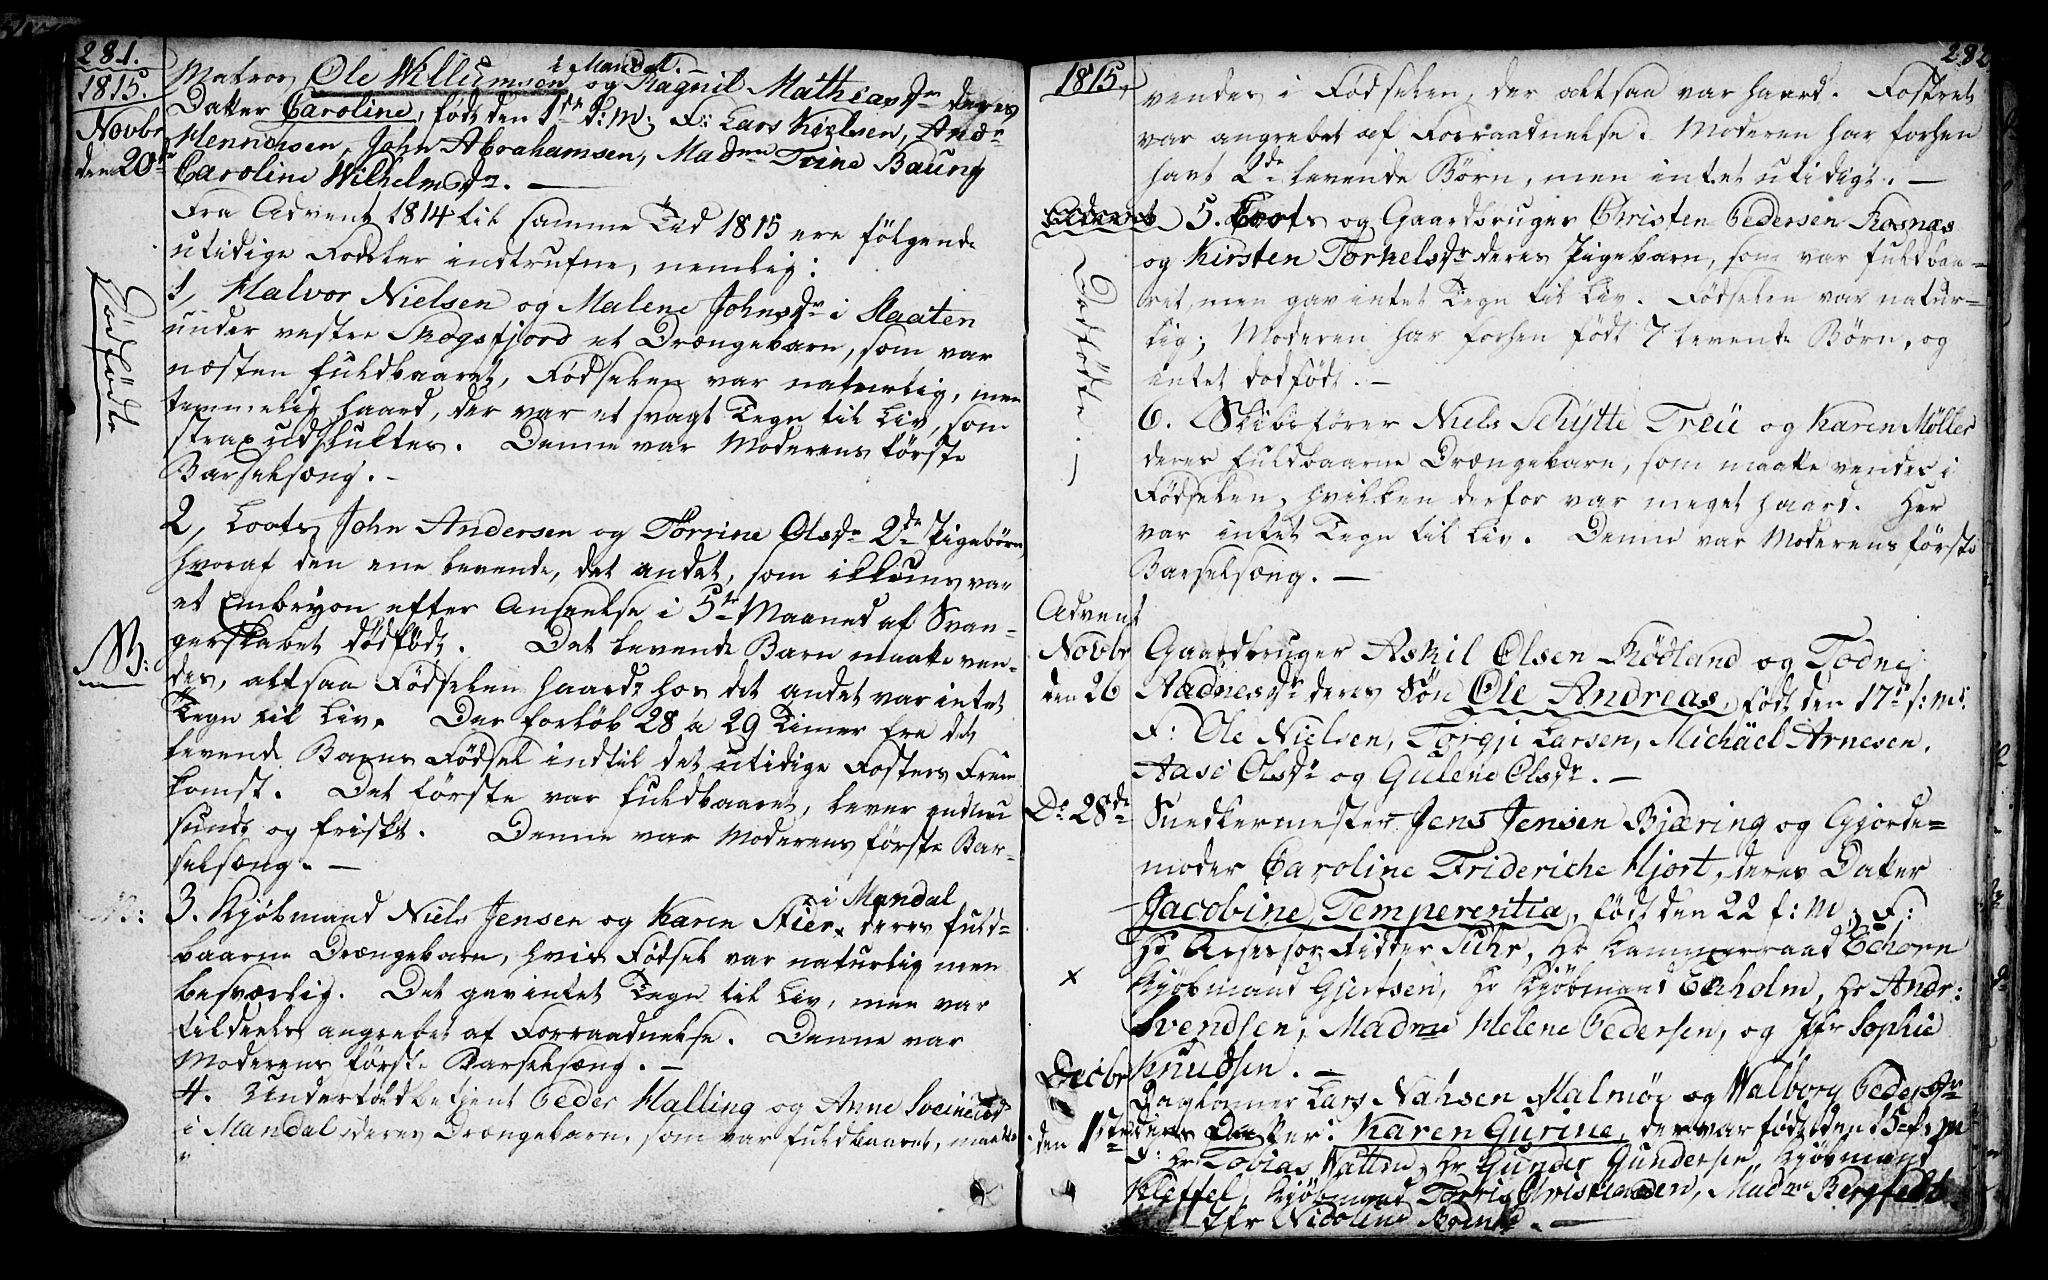 281.
1815.
Novbr
den 20de
Matros Ole Willumsen i Mandal og Ragnil Mathiasdr deres
Datter Caroline, født den 1ste d: M: F: Lars Nielsen, Andr
Henrichsen, John Abrahamsen, Madme Trine Baung
Caroline Wilhelmsdr. —
Fra Advent 1814 til samme Tid 1815 ere følgende
utidige Fødsler indtrufne, nemlig:
Dødfödte
1, Halvor Nielsen og Malene Johnsdr i Slaaten
under vestre Skogsfjord et Drængebarn, som var
næsten fuldbaaret, Fødselen var naturlig, men
temmelig haard, der var et svagt Tegn til Liv, som
strax udslultes. Denne var Moderens første
Barselsæng. —
2, Loots John Andersen og Torrine Olsdr 2de Pigebørn
hvoraf den ene levende, det andet, som ikkuns var
et Embryon efter Anseelse i 5te Maaned af Svan-
gerskabet dödfödt. Det levende Barn maatte ven-
NB:
des, altsaa Fødselen haard; hos det andet var intet
Tegn til Liv. Der forløb 28 a 29 Timer fra det
levende Barns Fødsel indtil det utidige Fosters Frem-
komst. Det første var fuldbaaret, lever endnu
sundt og friskt. Denne var Moderens første Bar-
selsæng. —
NB:
3. Kjöbmand Niels Jensen og Karen Stier i Mandal deres fuld-
baarne Drængebarn, hvis Fødsel var naturlig men
besværlig. Det gav intet Tegn til Liv, men var
tildeels angrebet af Forraadnelse. Denne var
Moderens første Barselsæng. —
4. Undertoldbetjent Peder Halling og Anne
i Mandal deres Drængebarn, som var fuldbaaret, maatte
282
1815.
vendes i Fødselen, der altsaa var haard. Fostret
var angrebet af Forraadnelse. Moderen har forhen
havt 2de levende Børn, men intet utidigt. —
Advent
5. Loots og Gaardbruger Christen Pedersen Rosnæs
og Kirsten Torkelsdr deres Pigebarn, som var fuldbaa-
ret, men gav intet Tegn til Liv. Fødselen var natur-
Dødfödte. —
lig; Moderen har forhen født 7 levende Børn, og
intet dødfødt. —
6. Skibsfører Niels Schÿtte Treü og Karen Möller
deres fuldbaarne Drængebarn, som maatte vendes i
Fødselen, hvilken derfor var meget haard. Her
var intet Tegn til Liv. Denne var Moderens første
Barselsæng. —
Advent
Novbr
den 26
Gaardbruger Askil Olsen Rödland og Todne
Aadnesdr deres Søn Ole Andreas, født den 17de f: M:
F: Ole Nielsen, Torgji Larsen, Michäel Arnesen,
Aase Olsdr og Gulene Olsdr. —
Do 28de
Snedkermester Jens Jensen Bjæring og Gjorde-
moder Caroline Frideriche Hjort, deres Datter
Jacobine Temperentia, født den 22 f: M: F:
Hr Assessor Ridder Suhr, Hr Kammerraad Echorn
x
Kjöbmand Gjertsen, Hr Kjöbmand Ekholm, Hr Andr:
Svendsen, Madme Helene Pedersen, og Jfr Sophie
Knudsen. —
Decbr
Daglønner Lars Nahsen Malmöe og Walborg Pedersdr
den 1ste
deres Datter: Karen Gurine, der var født den 15 f: M
F: Hr Tobias Wattne, Hr Gunder Gundersen, Kjöbmand
Kleffel, Kjöbmand Torris Christiansen, Madme Bergfeldt
Jfr Nicoline